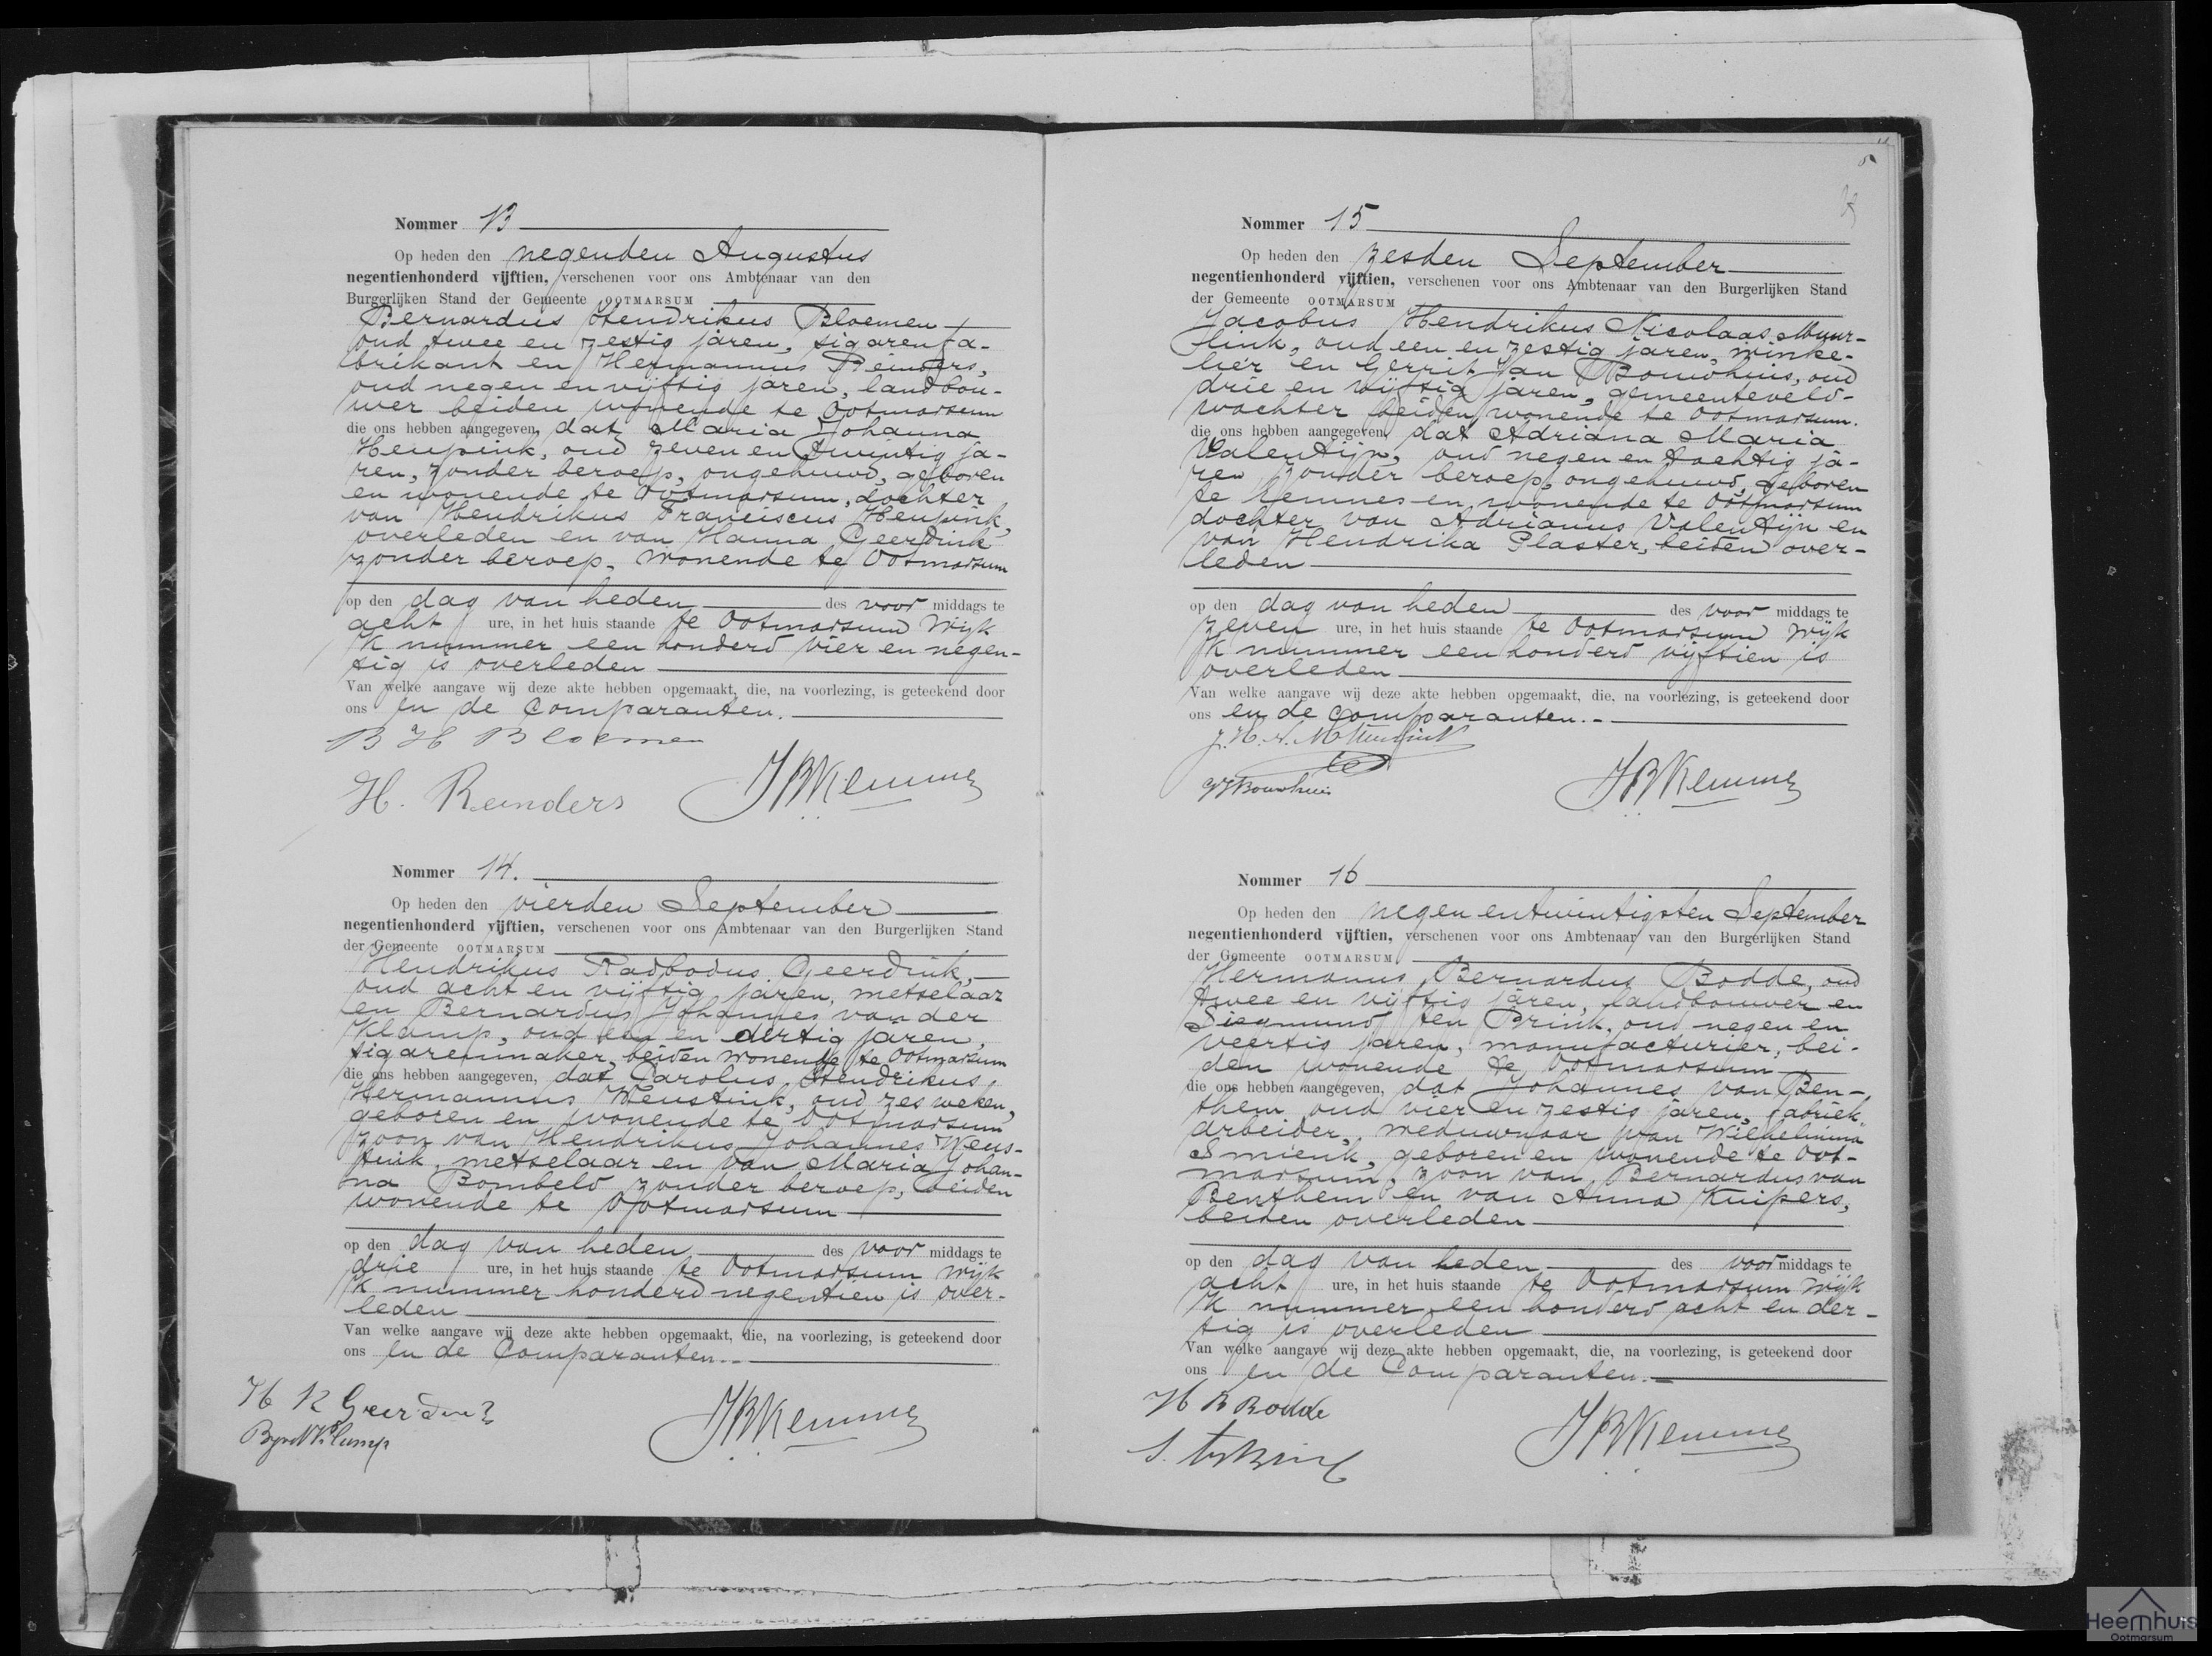 Nommer 13
Op heden den negenden Augustus
negentienhonderd vijftien, verschenen voor ons Ambtenaar van den
Burgerlijken Stand der Gemeente OOTMARSUM
Bernardus Hendrikus Bloemen
oud twee en zestig jaren, sigarenfa-
brikant en Hermannus Reinders,
oud negen en vijftig jaren, landbou-
wer beiden wonende te Ootmarsum
die ons hebben aangegeven, dat Maria Johanna
Heupink, oud zeven en twintig ja-
ren, zonder beroep, ongehuwd, geboren
en wonende te Ootmarsum, dochter
van Hendrikus Franciscus Heupink,
overleden en van Hanna Geerdink
zonder beroep, wonende te Ootmarsum
op den dag van heden des voor middags te
acht ure, in het huis staande te Ootmarsum Wijk
K nummer een honderd vier en negen-
tig is overleden
Van welke aangave wij deze akte hebben opgemaakt, die, na voorlezing, is geteekend door
ons en de Comparanten.
B H Bloemen
H. Reinders JBKemme
Nommer 14.
Op heden den vierden September
negentienhonderd vijftien, verschenen voor ons Ambtenaar van den Burgerlijken Stand
der Gemeente OOTMARSUM
Hendrikus Radbodus Geerdink,
oud acht en vijftig jaren, metselaar
en Bernardus Johannes van der
Klamp, oud een en dertig jaren,
sigarenmaker, beiden wonende te Ootmarsum
die ons hebben aangegeven, dat Carolus Hendrikus
Hermannus Weustink, oud zes weken,
geboren en wonende te Ootmarsum
zoon van Hendrikus Johannes Weus-
tink, metselaar en van Maria Johan-
na Bombeld zonder beroep, beiden
wonende te Ootmarsum
op den dag van heden des voor middags te
drie ure, in het huis staande te Ootmarsum Wijk
K nummer honderd negentien is over-
leden
Van welke aangave wij deze akte hebben opgemaakt, die, na voorlezing, is geteekend door
ons en de Comparanten.
H R Geerdink
JBKemme
Nommer 15
Op heden den zesden September
negentienhonderd vijftien, verschenen voor ons Ambtenaar van den Burgerlijken Stand
der Gemeente OOTMARSUM
Jacobus Hendrikus Nicolaas Muur-
link, oud een en zestig jaren, winke-
lier en Gerrit Jan Bouwhuis, oud
drie en vijftig jaren, gemeenteveld-
wachter beiden wonende te Ootmarsum.
die ons hebben aangegeven, dat Adriana Maria
Valentijn, oud negen en tachtig ja-
ren zonder beroep, ongehuwd, geboren
te Eemnes en wonende te Ootmarsum
dochter van Adrianus Valentijn en
van Hendrika Plaster, beiden over-
leden
op den dag van heden des voor middags te
zeven ure, in het huis staande te Ootmarsum Wijk
K nummer een honderd vijftien is
overleden
Van welke aangave wij deze akte hebben opgemaakt, die, na voorlezing, is geteekend door
ons en de Comparanten.
J. H. N. Muurlink
GJBouwhuis JBKemme
Nommer 16
Op heden den negen en twintigsten September
negentienhonderd vijftien, verschenen voor ons Ambtenaar van den Burgerlijken Stand
der Gemeente OOTMARSUM
Hermanus Bernardus Bodde, oud
twee en vijftig jaren, landbouwer en
Siegmund ten Brink, oud negen en
veertig jaren, manufacturier, bei-
den wonende te Ootmarsum
die ons hebben aangegeven, dat Johannes van Ben-
them oud vier en zestig jaren, fabriek-
arbeider, weduwnaar van Wilhelmina
Smienk, geboren en wonende te Oot-
marsum, zoon van Bernardus van
Benthem en van Anna Kuipers,
beiden overleden
op den dag van heden des voor middags te
acht ure, in het huis staande te Ootmarsum Wijk
K nummer een honderd acht en der-
tig is overleden
Van welke aangave wij deze akte hebben opgemaakt, die, na voorlezing, is geteekend door
ons en de Comparanten.
H B Bodde
S. ten Brink JBKemme
Heemhuis
Ootmarsum